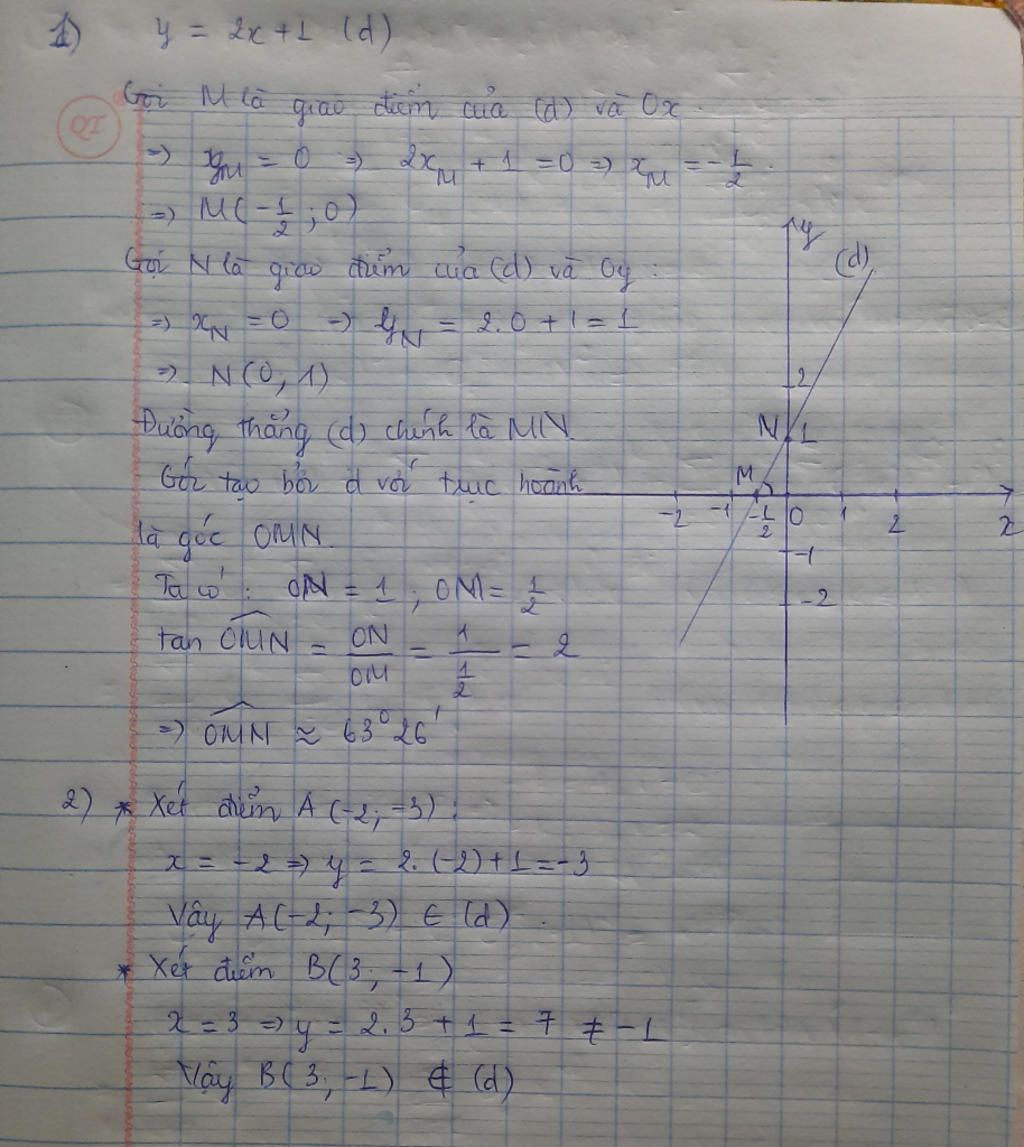 1) y = 2x + 1 (d)
Gọi M là giao điểm của (d) và Ox.
=> y_M = 0 => 2x_M + 1 = 0 => x_M = -1/2.
=> M(-1/2; 0)
Gọi N là giao điểm của (d) và Oy :
=> x_N = 0 => y_N = 2.0 + 1 = 1
=> N(0; 1)
Đường thẳng (d) chính là MN.
Góc tạo bởi d với trục hoành
là góc OMN.
Ta có : ON = 1 ; OM = 1/2
tan OMN = ON/OM = 1/(1/2) = 2
=> OMN ≈ 63°26'
y
(d)
2
N 1
M
-2 -1 -1/2 0 1 2 x
-1
-2
2) * Xét điểm A(-2; -3) :
x = -2 => y = 2.(-2) + 1 = -3
Vậy A(-2; -3) ∈ (d).
* Xét điểm B(3; -1)
x = 3 => y = 2.3 + 1 = 7 ≠ -1
Vậy B(3; -1) ∉ (d)